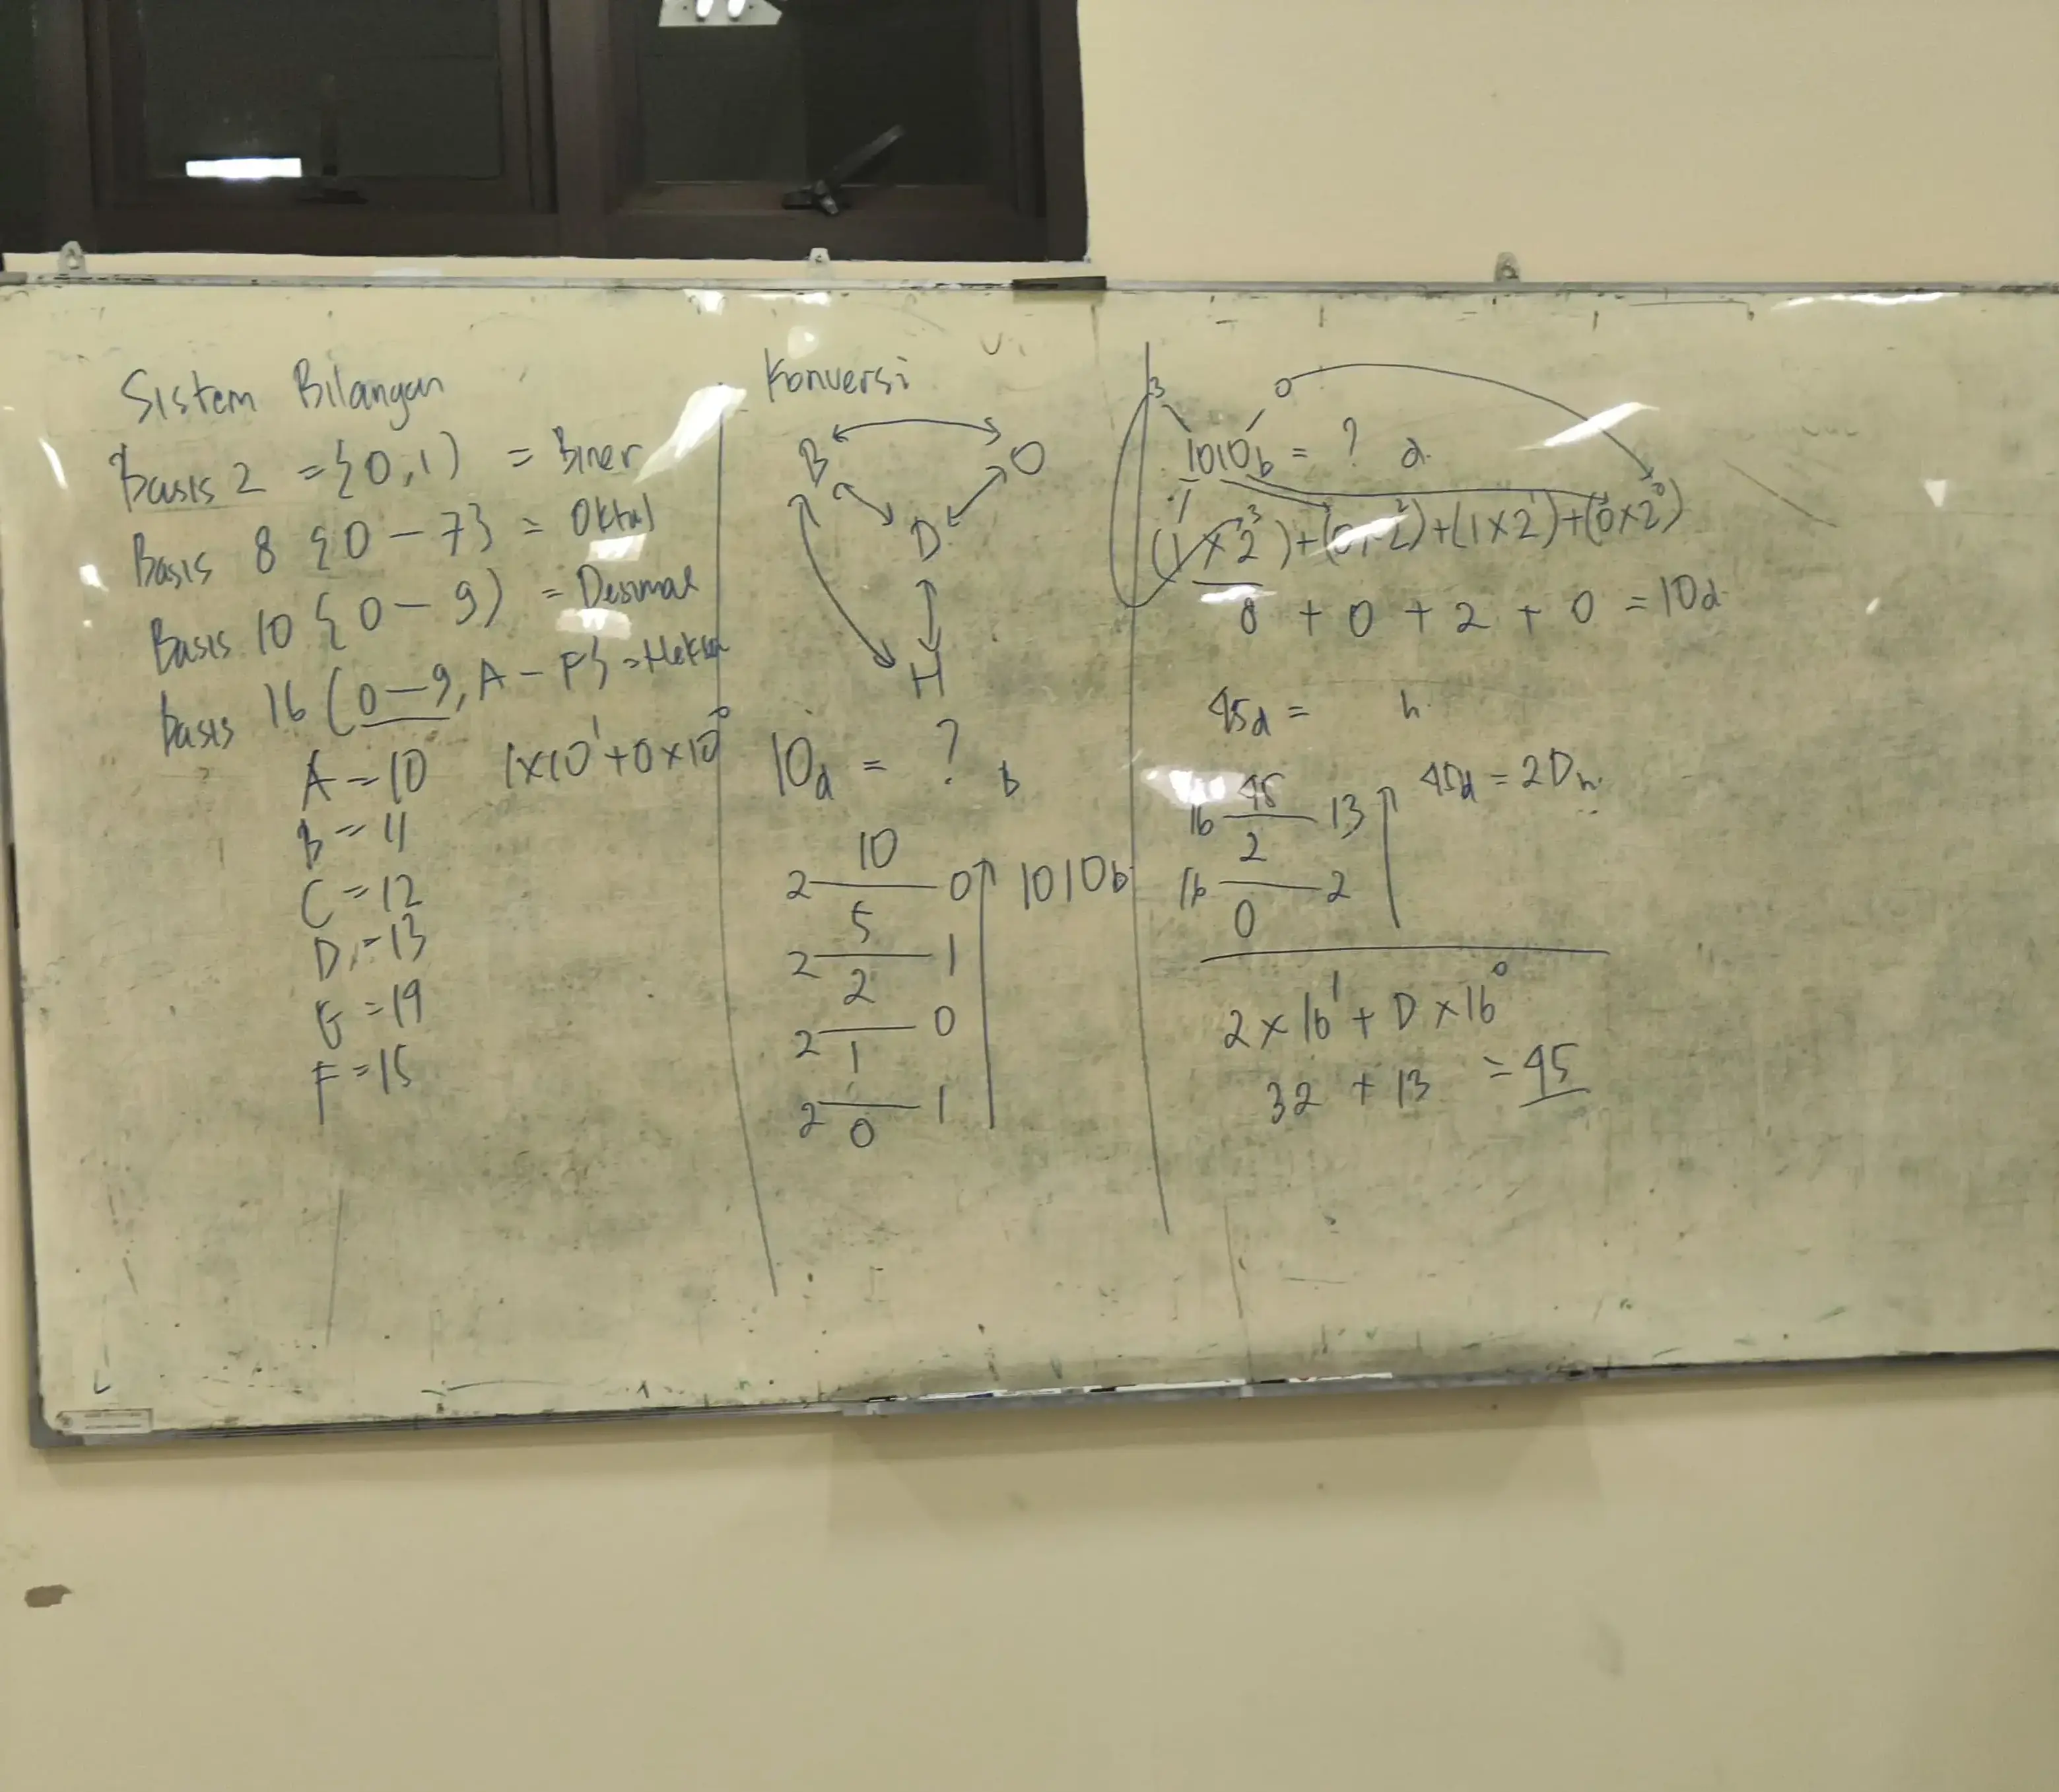 Sistem Bilangan
Basis 2 = {0,1) = Biner
Basis 8 {0 – 7} = Oktal
Basis 10 {0 – 9) = Desimal
basis 16 (0 – 9, A – F} = Heksa
A = 10 1×10¹ + 0×10⁰
B = 11
C = 12
D = 13
E = 14
F = 15
Konversi
B O
D
H
10d = ? b
10
2 — 0 1010b
5
2 — 1
2
2 — 0
1
2 — 1
0
3 0
1010b = ? d
(1 × 2³) + (0 × 2²) + (1 × 2¹) + (0 × 2⁰)
8 + 0 + 2 + 0 = 10d
45d = h
45 45d = 2Dh
16 — 13
2
16 — 2
0
2 × 16¹ + D × 16⁰
32 + 13 = 45